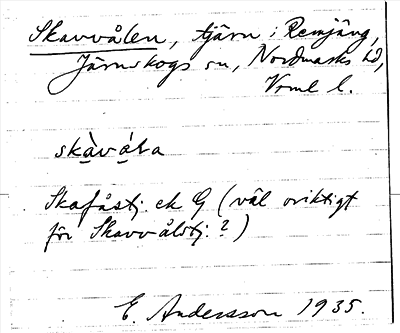 Skavvålen, tjärn i Remjäng,
Järnskogs sn, Nordmarks hd,
Vrml l.
skàvála
Skafåstj. ek G (väl oriktigt
för Skavvålstj: ?)
E. Andersson 1935.